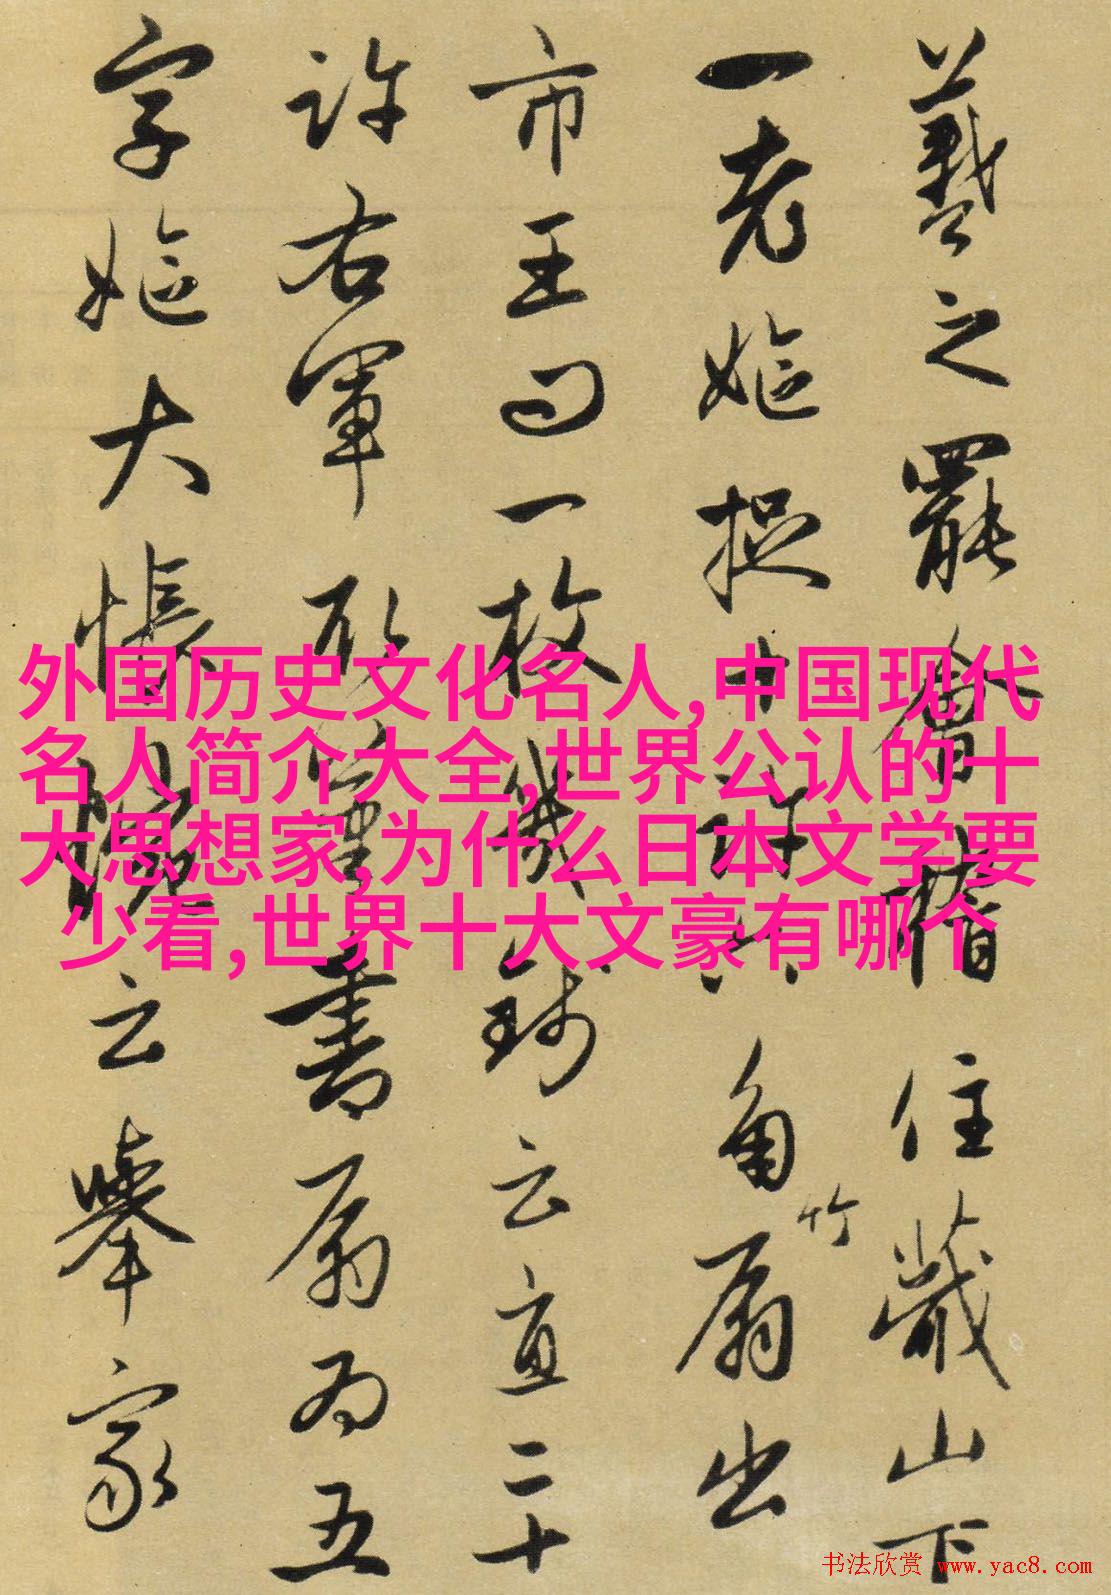 羲之罷會稽住蕺山下
一老嫗捉十許六角竹扇出
市王問一枚幾錢云直二十
許右軍取筆書扇為五
字嫗大悵惋云舉家
外国历史文化名人,中国现代
名人简介大全,世界公认的十
大思想家,为什么日本文学要
少看,世界十大文豪有哪个
书法欣赏 www.yac8.com